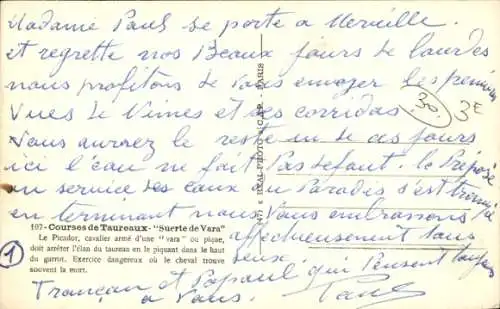 Madame Paul se porte a Merveille.
et regrette nos Beaux jours de lourdes
nous profitons de Vous envoyer les premiers
Vues de Nimes et ses corridas
Vous aurez le reste un de ces jours
ici l'eau ne fait Pas defaut. le Prépose
au service des eaux au Paradis s'est
en terminant nous Vous embrassons
affectueusement tous
deux.
qui Pensent toujours
Françon et Papaul
a Vous.
Paul
30.
3E
1
107 - Courses de Taureaux - "Suerte de Vara"
Le Picador, cavalier armé d'une "vara" ou pique,
doit arrêter l'élan du taureau en le piquant dans le haut
du garrot. Exercice dangereux où le cheval trouve
souvent la mort.
REAL-PHOTO C.A.P. PARIS